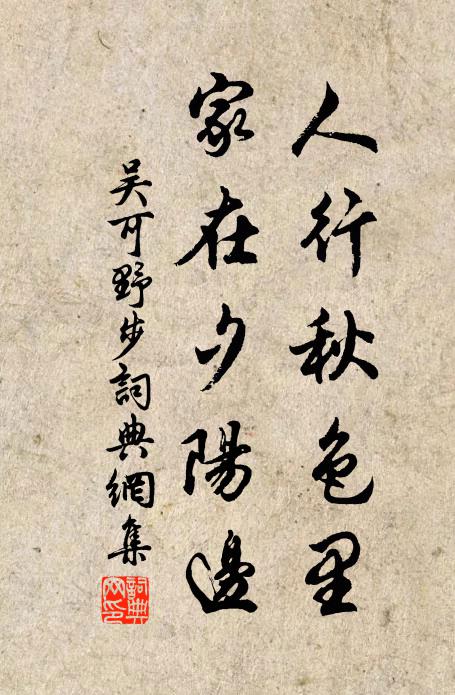 人行秋色里
家在夕陽邊
吴可野步詞典網集
詞典网印